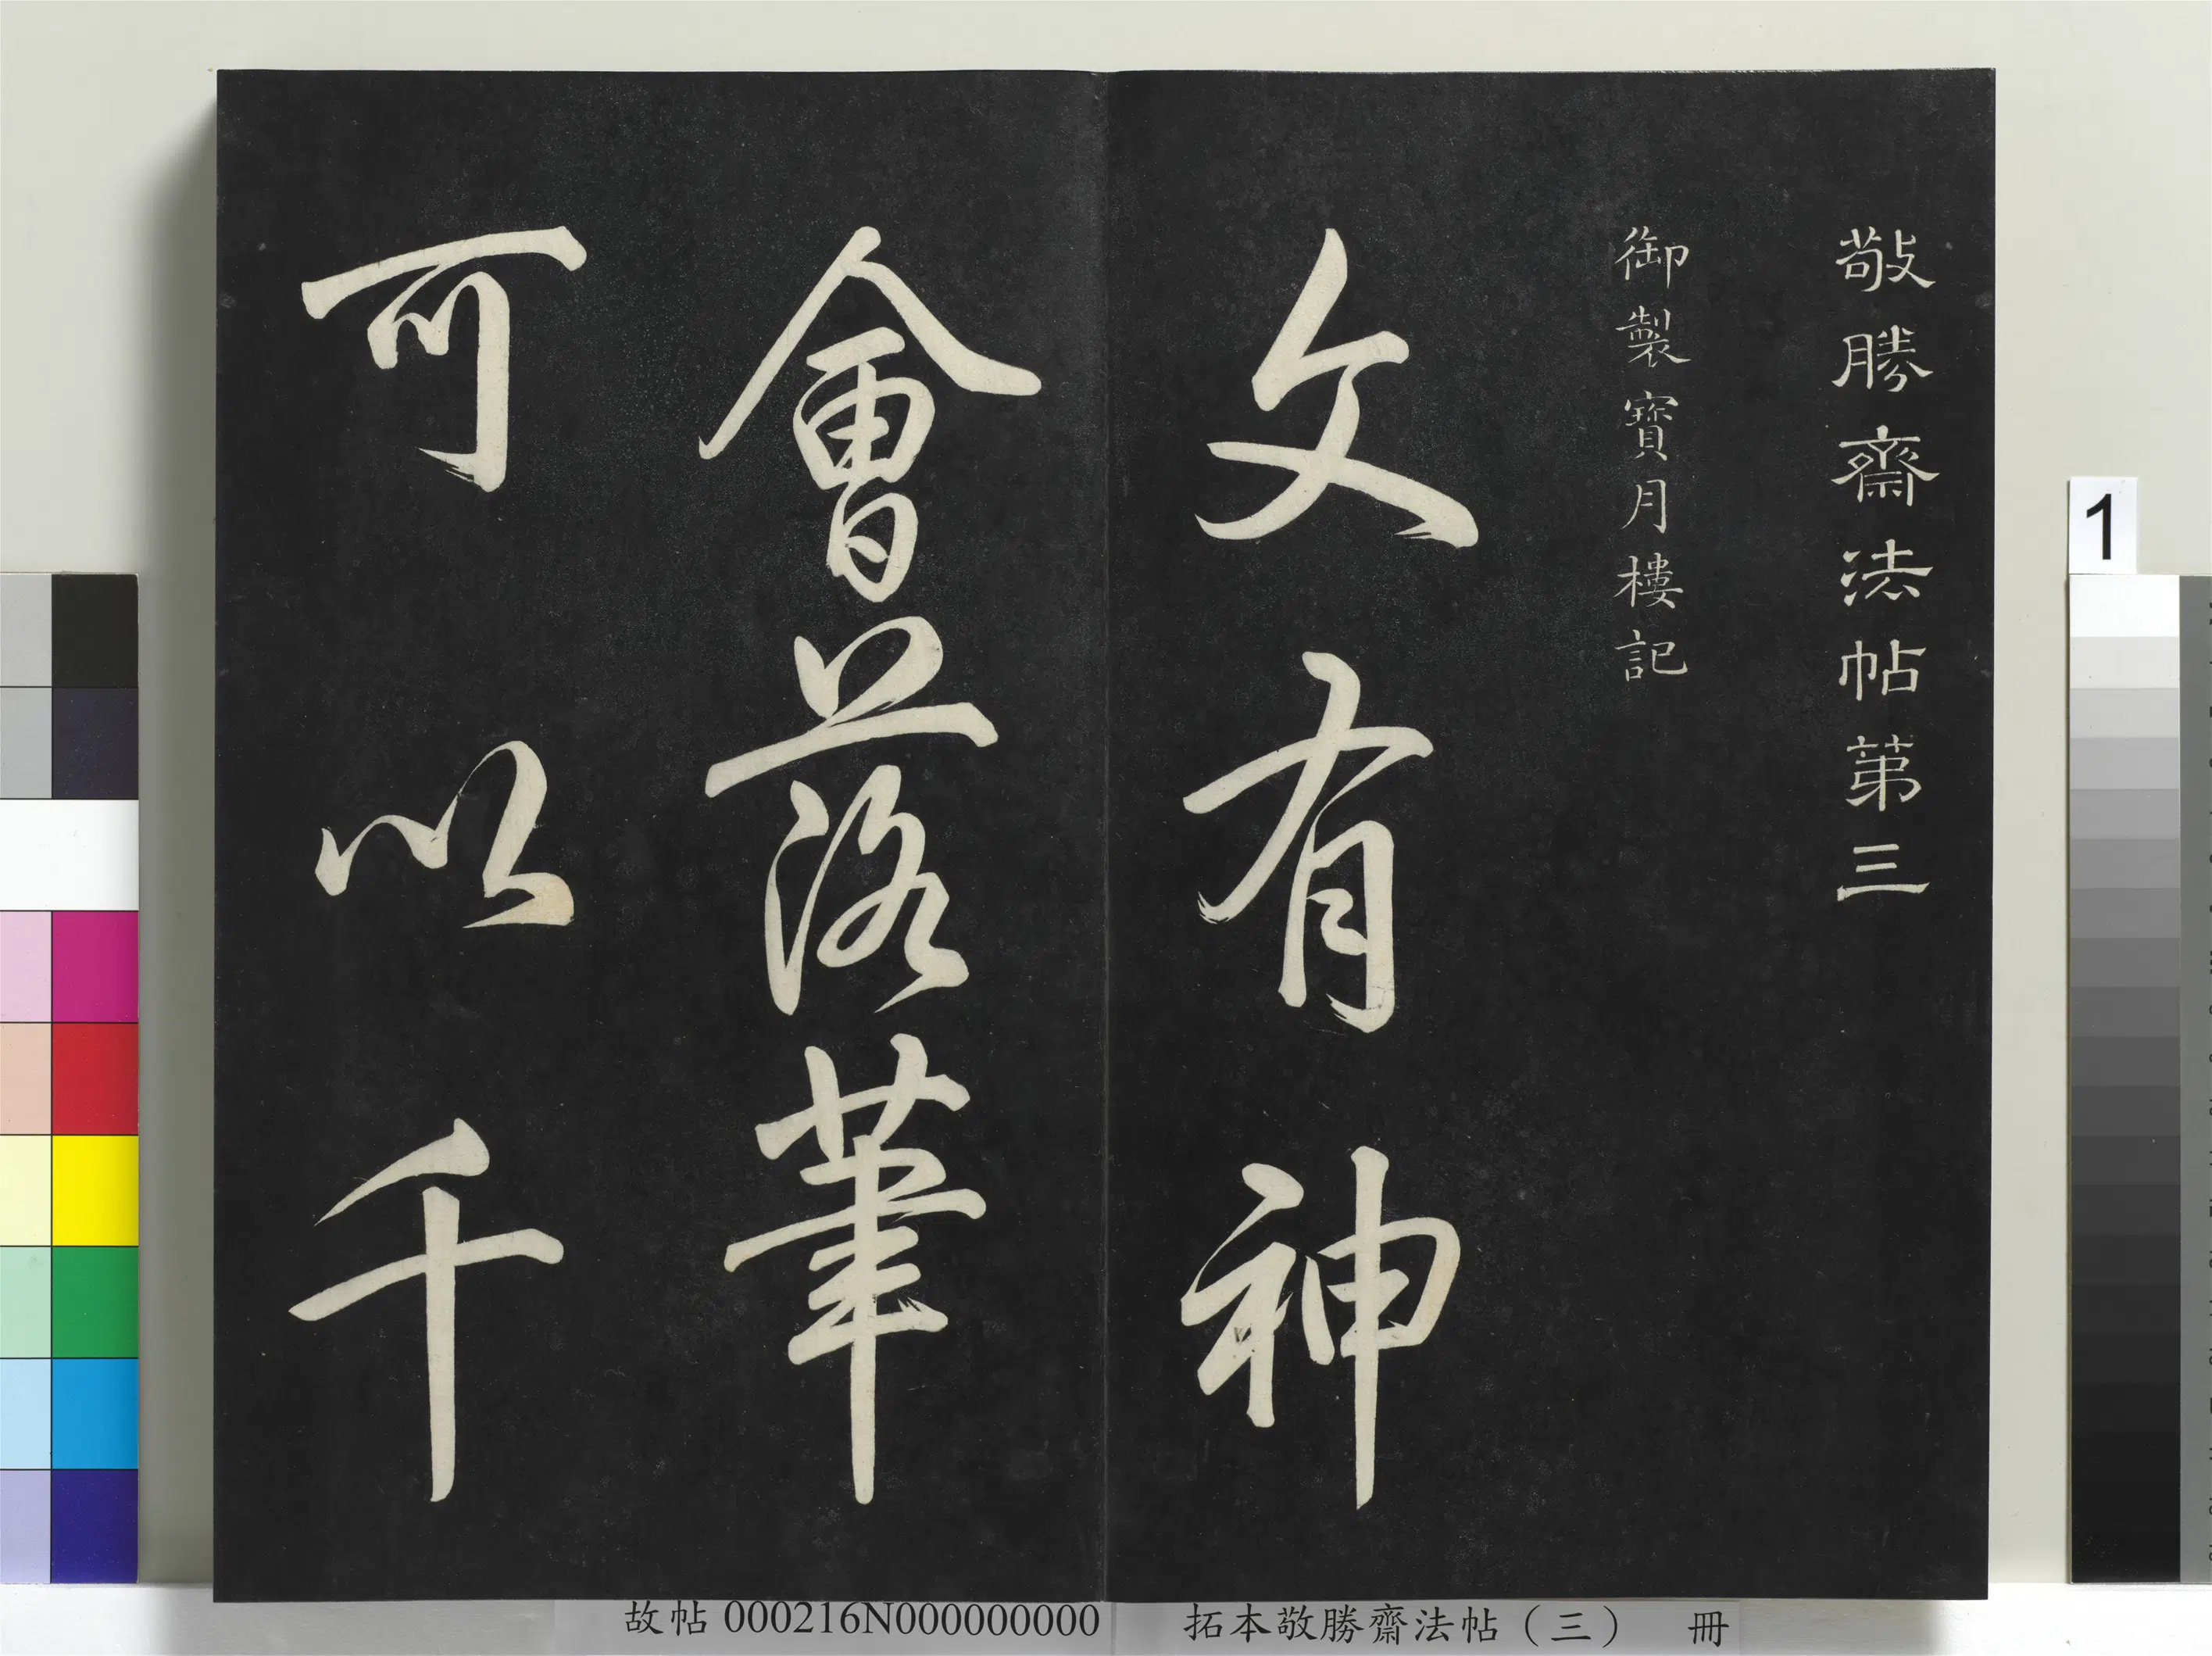 敬勝齋法帖第三
御製寶月樓記
文有神
會以落筆
可以千
1
故帖 000216N000000000
拓本敬勝齋法帖（三） 冊